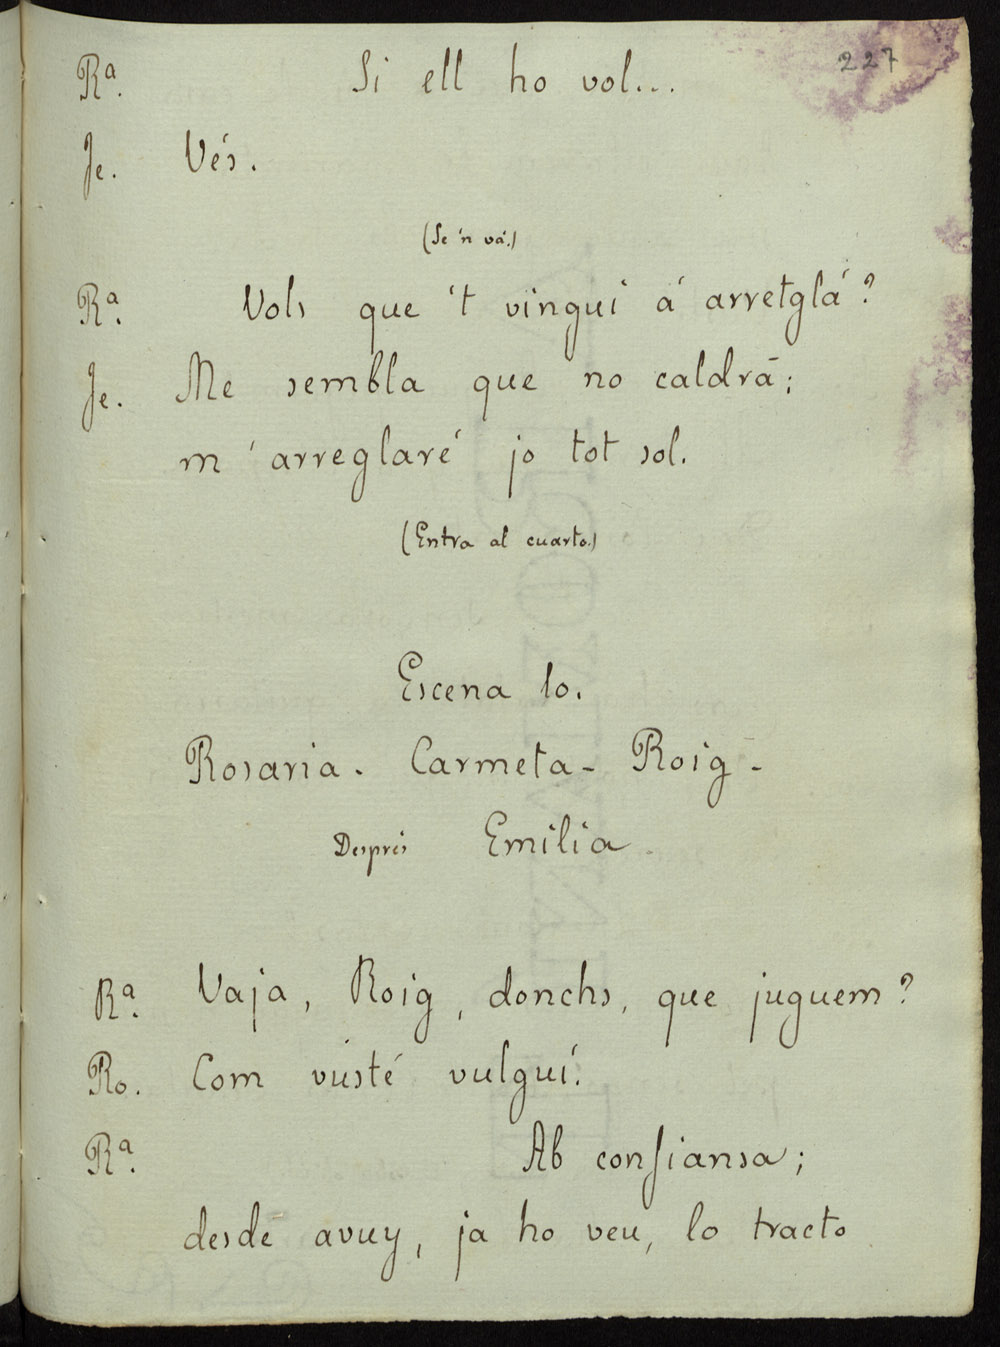 227
Rª. Si ell ho vol...
Je. Vés.
(Se 'n vá.)
Rª. Vols que 't vingui á arretglá?
Je. Me sembla que no caldrá;
m' arreglaré jo tot sol.
(Entra al cuarto.)
Escena 10.
Rosaria - Carmeta - Roig -
Després Emilia.
Rª. Vaja, Roig, donchs, que juguem?
Ro. Com vusté vulguí.
Rª. Ab confiansa;
desde avuy, ja ho veu, lo tracto